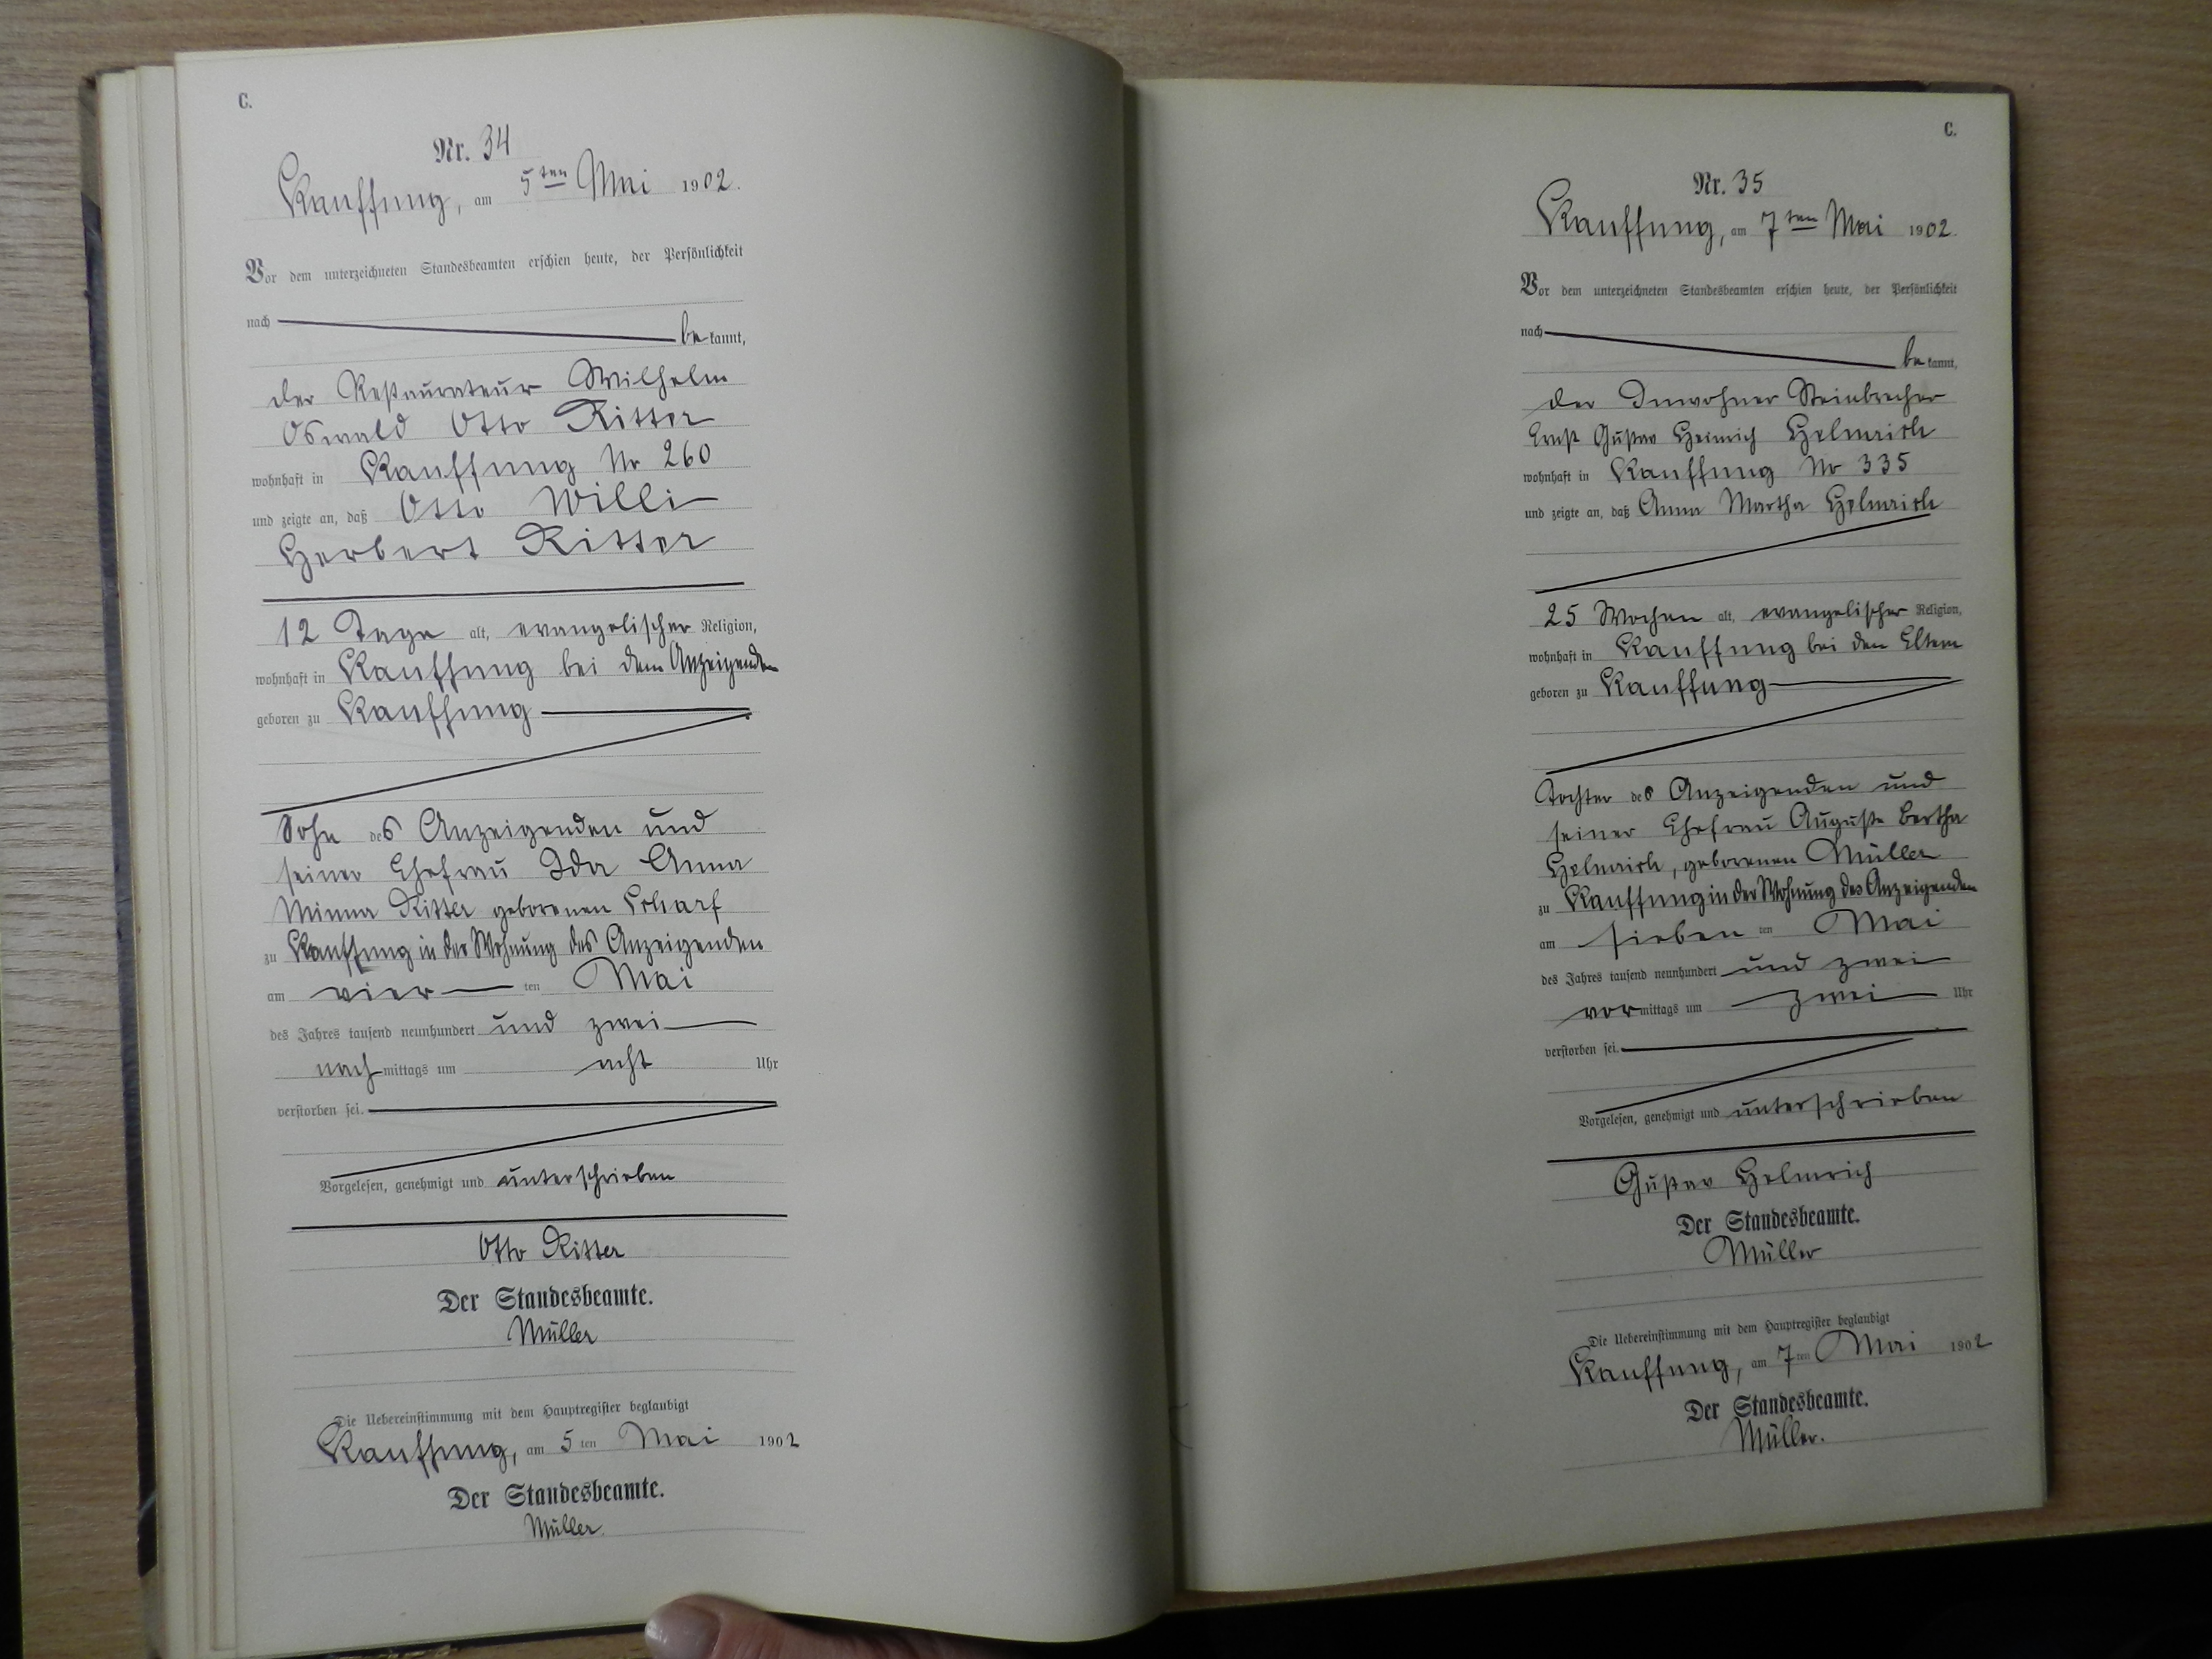 C.
Nr. 34
Kauffung, am 5ten Mai 1902.
Vor dem unterzeichneten Standesbeamten erschien heute, der Persönlichkeit
nach be kannt,
der Restaurateur Wilhelm
Oswald Otto Ritter
wohnhaft in Kauffung No 260
und zeigte an, daß Otto Willi
Herbert Ritter
12 Tage alt, evangelischer Religion,
wohnhaft in Kauffung bei dem Anzeigenden
geboren zu Kauffung
Sohn des Anzeigenden und
seiner Ehefrau Ida Anna
Minna Ritter geborenen Scharf
zu Kauffung in der Wohnung des Anzeigenden
am vier ten Mai
des Jahres tausend neunhundert und zwei
nach mittags um acht Uhr
verstorben sei.
Vorgelesen, genehmigt und unterschrieben
Otto Ritter
Der Standesbeamte.
Müller
Die Uebereinstimmung mit dem Hauptregister beglaubigt
Kauffung, am 5 ten Mai 1902
Der Standesbeamte.
Müller.
C.
Nr. 35
Kauffung, am 7ten Mai 1902.
Vor dem unterzeichneten Standesbeamten erschien heute, der Persönlichkeit
nach be kannt,
der Inwohner Steinbrecher
Ernst Gustav Heinrich Helmrich
wohnhaft in Kauffung No 335
und zeigte an, daß Anna Martha Helmrich
25 Wochen alt, evangelischer Religion,
wohnhaft in Kauffung bei den Eltern
geboren zu Kauffung
Tochter des Anzeigenden und
seiner Ehefrau Auguste Bertha
Helmrich, geborenen Müller
zu Kauffung in der Wohnung des Anzeigenden
am sieben ten Mai
des Jahres tausend neunhundert und zwei
vor mittags um zwei Uhr
verstorben sei.
Vorgelesen, genehmigt und unterschrieben
Gustav Helmrich
Der Standesbeamte.
Müller
Die Uebereinstimmung mit dem Hauptregister beglaubigt
Kauffung, am 7 ten Mai 1902
Der Standesbeamte.
Müller.